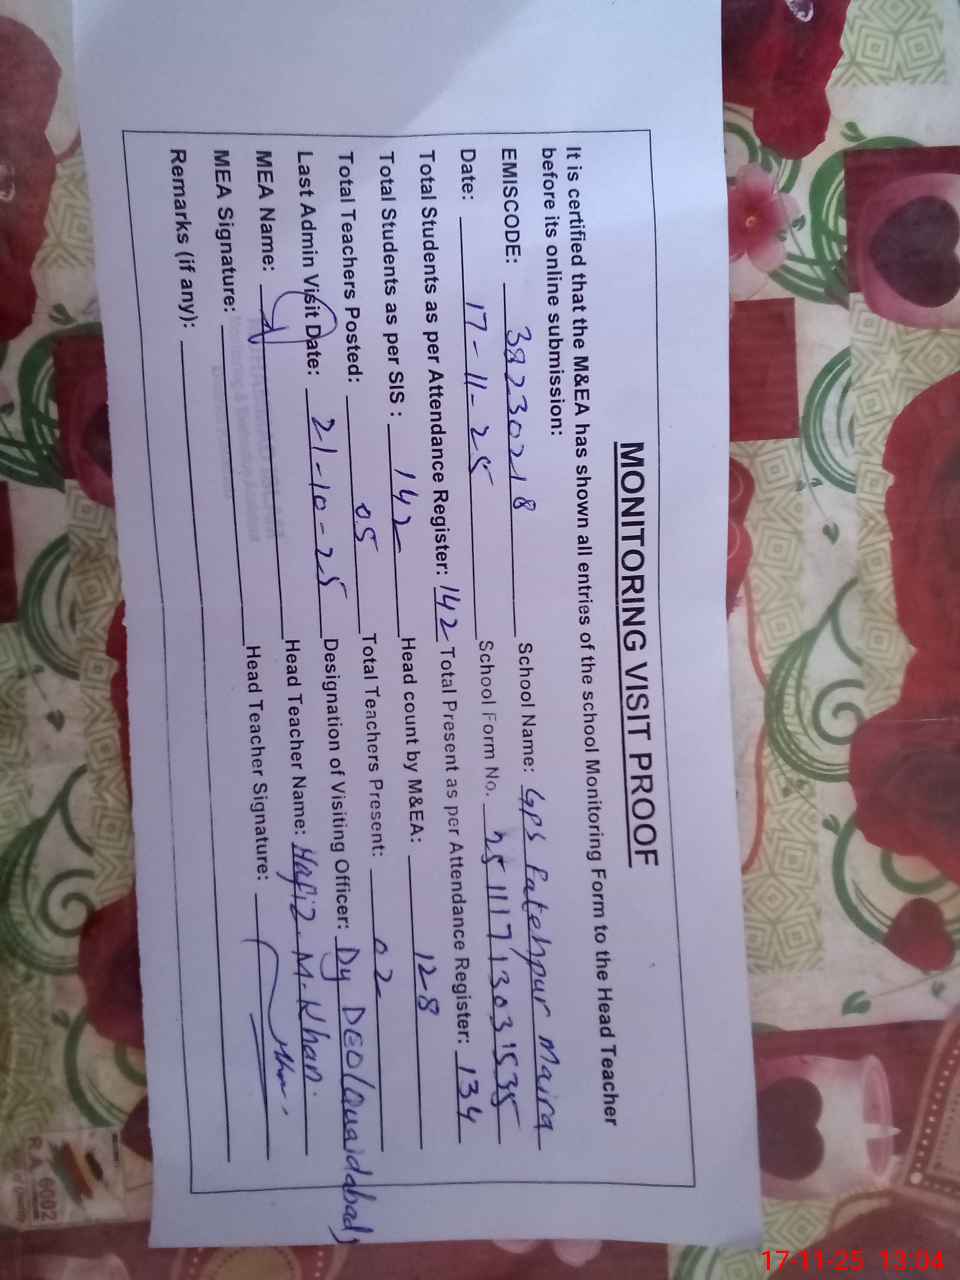 MONITORING VISIT PROOF
It is certified that the M&EA has shown all entries of the school Monitoring Form to the Head Teacher
before its online submission:
EMISCODE: 38230218 School Name: GPS Fatehpur Maira
Date: 17-11-25 School Form No. 25111713031535
Total Students as per Attendance Register: 142 Total Present as per Attendance Register: 134
Total Students as per SIS : 142 Head count by M&EA: 128
Total Teachers Posted: 05 Total Teachers Present: 02
Last Admin Visit Date: 21-10-25 Designation of Visiting Officer: Dy DEO (Quaidabad)
MEA Name: Head Teacher Name: Hafiz M. Khan.
MEA Signature: Head Teacher Signature:
Remarks (if any):
17-11-25 13:04